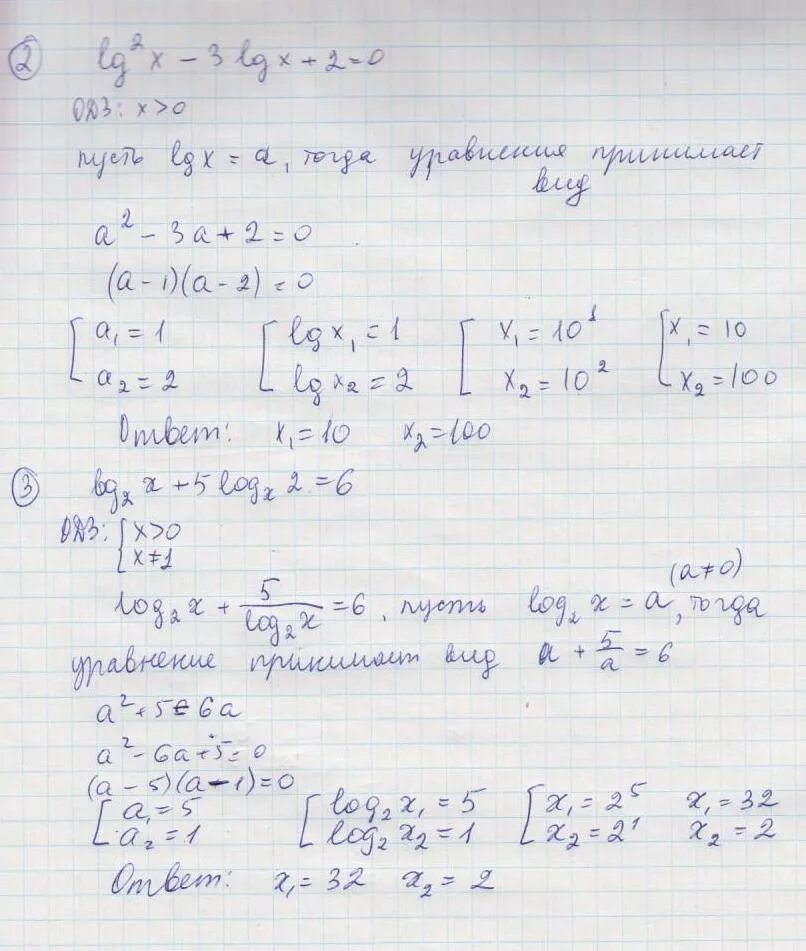 ② lg²x - 3 lg x + 2 = 0
ОДЗ: x > 0
пусть lg x = a, тогда уравнения принимает
вид
a² - 3a + 2 = 0
(a - 1)(a - 2) = 0
[ a₁ = 1 [ lg x₁ = 1 [ x₁ = 10¹ [ x₁ = 10
a₂ = 2 lg x₂ = 2 x₂ = 10² x₂ = 100
Ответ: x₁ = 10 x₂ = 100
③ log₂ x + 5 logₓ 2 = 6
ОДЗ: { x > 0
x ≠ 1
(a ≠ 0)
log₂ x + 5/log₂ x = 6, пусть log₂ x = a, тогда
уравнение принимает вид a + 5/a = 6
a² + 5 = 6a
a² - 6a + 5 = 0
(a - 5)(a - 1) = 0
[ a₁ = 5 [ log₂ x₁ = 5 [ x₁ = 2⁵ x₁ = 32
a₂ = 1 log₂ x₂ = 1 x₂ = 2¹ x₂ = 2
Ответ: x₁ = 32 x₂ = 2